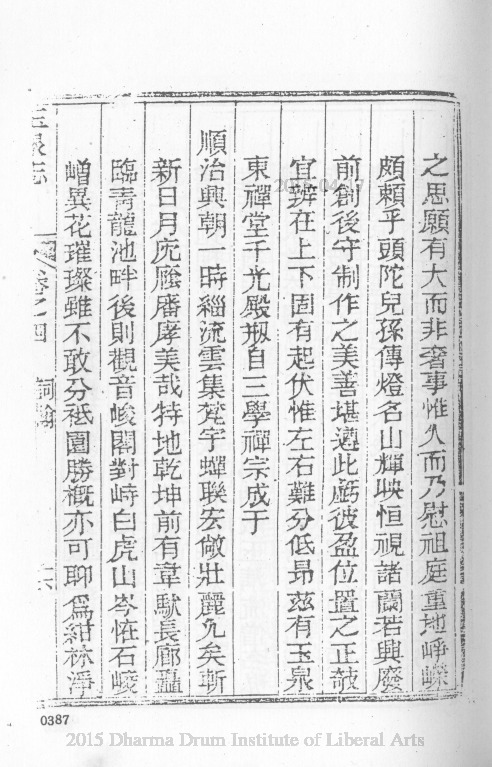 之思願有大而非奢事惟久而乃慰祖庭重地崢嶸
頗賴乎頭陀兒孫傳燈名山輝映恒視諸蘭若興廢
前創後守制作之美善堪遵此虧彼盈位置之正攲
宜辨在上下固有起伏惟左右難分低昂茲有玉泉
東禪堂千光殿剏自三學禪宗成于
順治興朝一時緇流雲集梵宇蟬聯宏敞壯麗久矣斬
新日月庇廕潘摩美哉特地乾坤前有韋馱長廊矗
臨青龍池畔後則觀音峻閣對峙白虎山岑恠石峻
嶒異花璀璨雖不敢分祗園勝概亦可聊爲紺林淨
玉泉志
卷之四
詞翰
二六
0387
2015 Dharma Drum Institute of Liberal Arts